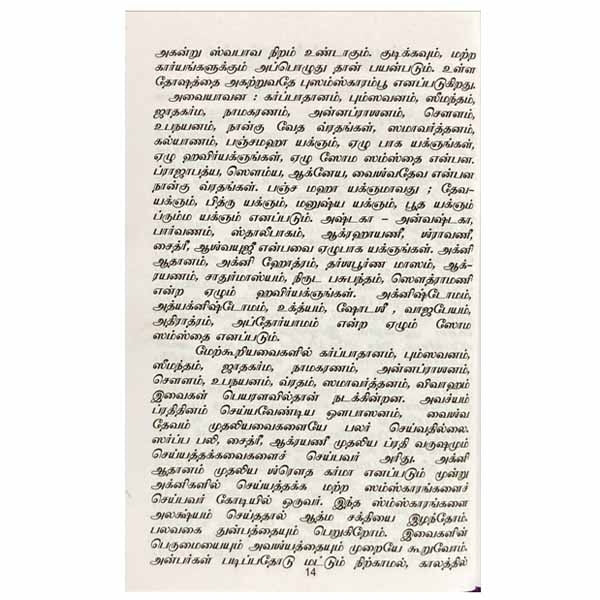 அகன்று ஸ்வபாவ நிறம் உண்டாகும். குடிக்கவும், மற்ற
கார்யங்களுக்கும் அப்பொழுது தான் பயன்படும். உள்ள
தோஷத்தை அகற்றுவதே புஸம்ஸ்காரம்பூ எனப்படுகிறது.
அவையாவன : கர்ப்பாதானம், பும்ஸவனம், ஸீமந்தம்,
ஜாதகர்ம, நாமகரணம், அன்னப்ராஶனம், சௌளம்,
உபநயனம், நான்கு வேத வ்ரதங்கள், ஸமாவர்த்தனம்,
கல்யாணம், பஞ்சமஹா யக்ஞம், ஏழு பாக யக்ஞங்கள்,
ஏழு ஹவிர்யக்ஞங்கள், ஏழு ஸோம ஸம்ஸ்தை என்பன.
ப்ராஜாபத்ய, ஸௌம்ய, ஆக்னேய, வைஶ்வதேவ என்பன
நான்கு வ்ரதங்கள். பஞ்ச மஹா யக்ஞமாவது ; தேவ-
யக்ஞம், பித்ரு யக்ஞம், மனுஷ்ய யக்ஞம், பூத யக்ஞம்
ப்ரும்ம யக்ஞம் எனப்படும். அஷ்டகா – அன்வஷ்டகா,
பார்வணம், ஸ்தாலீபாகம், ஆக்ரஹாயணீ, ஶ்ராவணீ,
சைத்ரீ, ஆஶ்வயுஜீ என்பவை ஏழுபாக யக்ஞங்கள். அக்னி
ஆதானம், அக்னி ஹோத்ரம், தர்ஶபூர்ண மாஸம், ஆக்-
ரயணம், சாதுர்மாஸ்யம், நிரூட பசுபந்தம், ஸௌத்ராமணி
என்ற ஏழும் ஹவிர்யக்ஞங்கள். அக்னிஷ்டோமம்,
அத்யக்னிஷ்டோமம், உக்த்யம், ஷோடஶீ , வாஜபேயம்,
அதிராத்ரம், அப்தோர்யாமம் என்ற ஏழும் ஸோம
ஸம்ஸ்தை எனப்படும்.
மேற்கூறியவைகளில் கர்ப்பாதானம், பும்ஸவனம்,
ஸீமந்தம், ஜாதகர்ம, நாமகரணம், அன்னப்ராஶனம்,
சௌளம், உபநயனம், வ்ரதம், ஸமாவர்த்தனம், விவாஹம்
இவைகள் பெயரளவில்தான் நடக்கின்றன. அவச்யம்
ப்ரதிதினம் செய்யவேண்டிய ஔபாஸனம், வைஶ்வ
தேவம் முதலியவைகளையே பலர் செய்வதில்லை.
ஸர்ப்ப பலி, சைத்ரீ, ஆக்ரயணீ முதலிய ப்ரதி வருஷமும்
செய்யத்தக்கவைகளைச் செய்பவர் அரிது. அக்னி
ஆதானம் முதலிய ஶ்ரௌத கர்மா எனப்படும் மூன்று
அக்னிகளில் செய்யத்தக்க மற்ற ஸம்ஸ்காரங்களைச்
செய்பவர் கோடியில் ஒருவர். இந்த ஸ்ம்ஸ்காரங்களை
அலக்ஷ்யம் செய்ததால் ஆத்ம சக்தியை இழந்தோம்.
பலவகை துன்பத்தையும் பெறுகிறோம். இவைகளின்
பெருமையையும் அவஶ்யத்தையும் முறையே கூறுவோம்.
அன்பர்கள் படிப்பதோடு மட்டும் நிற்காமல், காலத்தில்
14